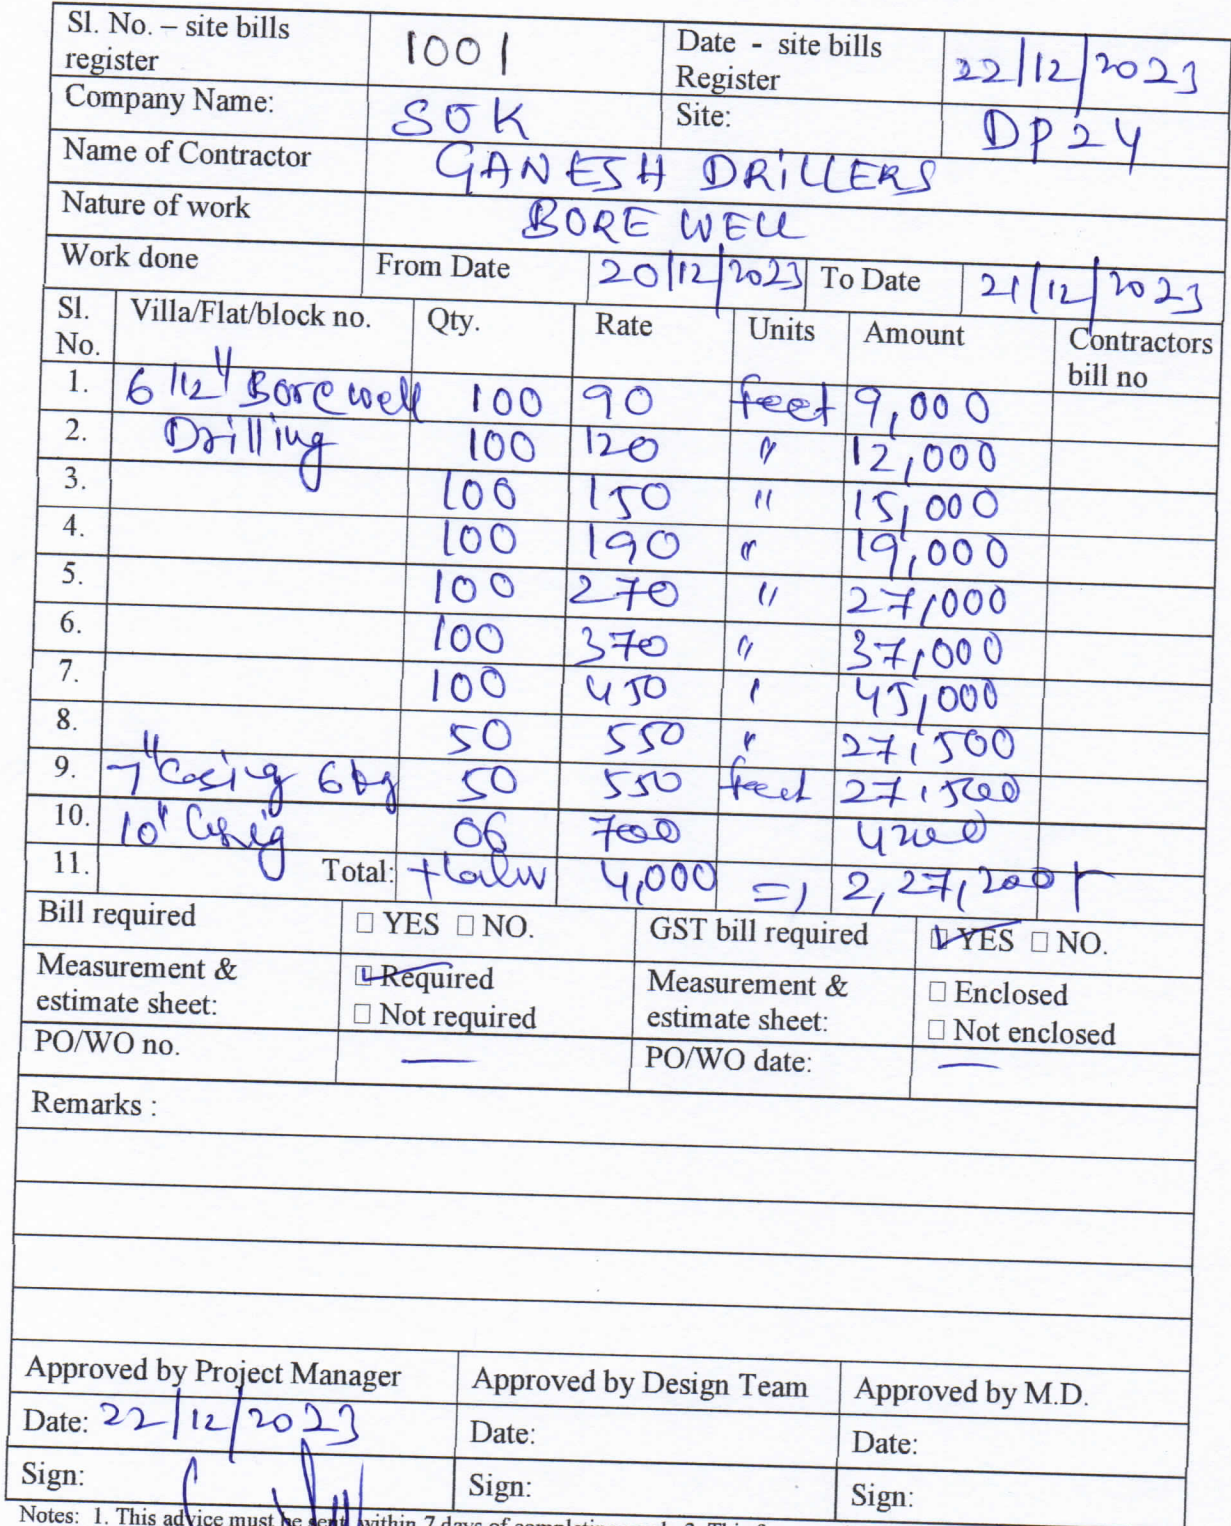 Sl. No. – site bills register 1001 Date - site bills Register 22/12/2023
Company Name: SOK Site: DP24
Name of Contractor GANESH DRILLERS
Nature of work BORE WELL
Work done From Date 20/12/2023 To Date 21/12/2023
Sl. No. Villa/Flat/block no. Qty. Rate Units Amount Contractors bill no
1. 6 1/2" Borewell 100 90 feet 9,000
2. Drilling 100 120 " 12,000
3. 100 150 " 15,000
4. 100 190 " 19,000
5. 100 270 " 27,000
6. 100 370 " 37,000
7. 100 450 " 45,000
8. 50 550 " 27,500
9. 7" Casig 6kg 50 550 feet 27,500
10. 10" Casig 06 700 4200
11. Total: 4,000 => 2,27,200
Bill required □ YES □ NO. GST bill required □ YES □ NO.
Measurement & estimate sheet: □ Required □ Not required Measurement & estimate sheet: □ Enclosed □ Not enclosed
PO/WO no. — PO/WO date: —
Remarks :
Approved by Project Manager Approved by Design Team Approved by M.D.
Date: 22/12/2023 Date: Date:
Sign: Sign: Sign:
Notes: 1. This advice must be sent within 7 days of